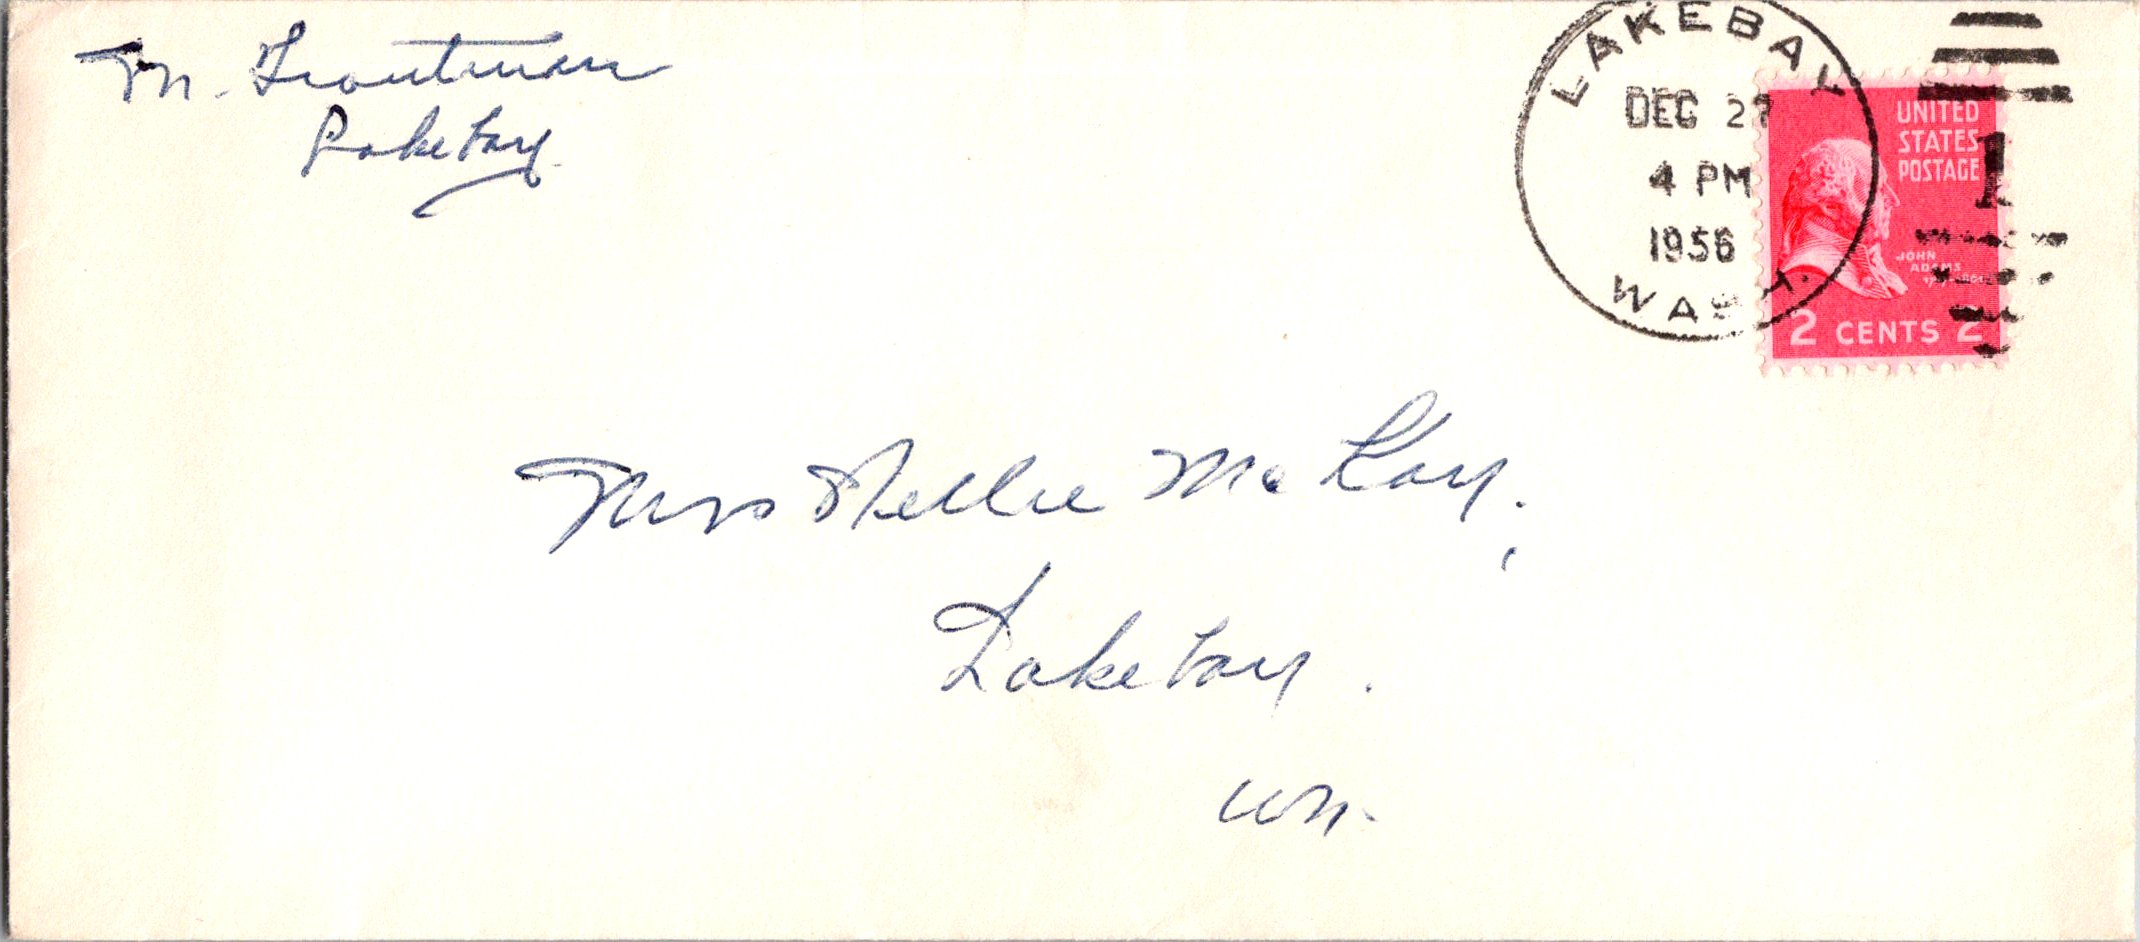 M. Troutman
Lakebay
LAKEBAY
DEC 27
4 PM
1956
WASH.
1
UNITED
STATES
POSTAGE
JOHN
ADAMS
2 CENTS 2
Mrs Nellie McKay.
Lakebay.
Wn.